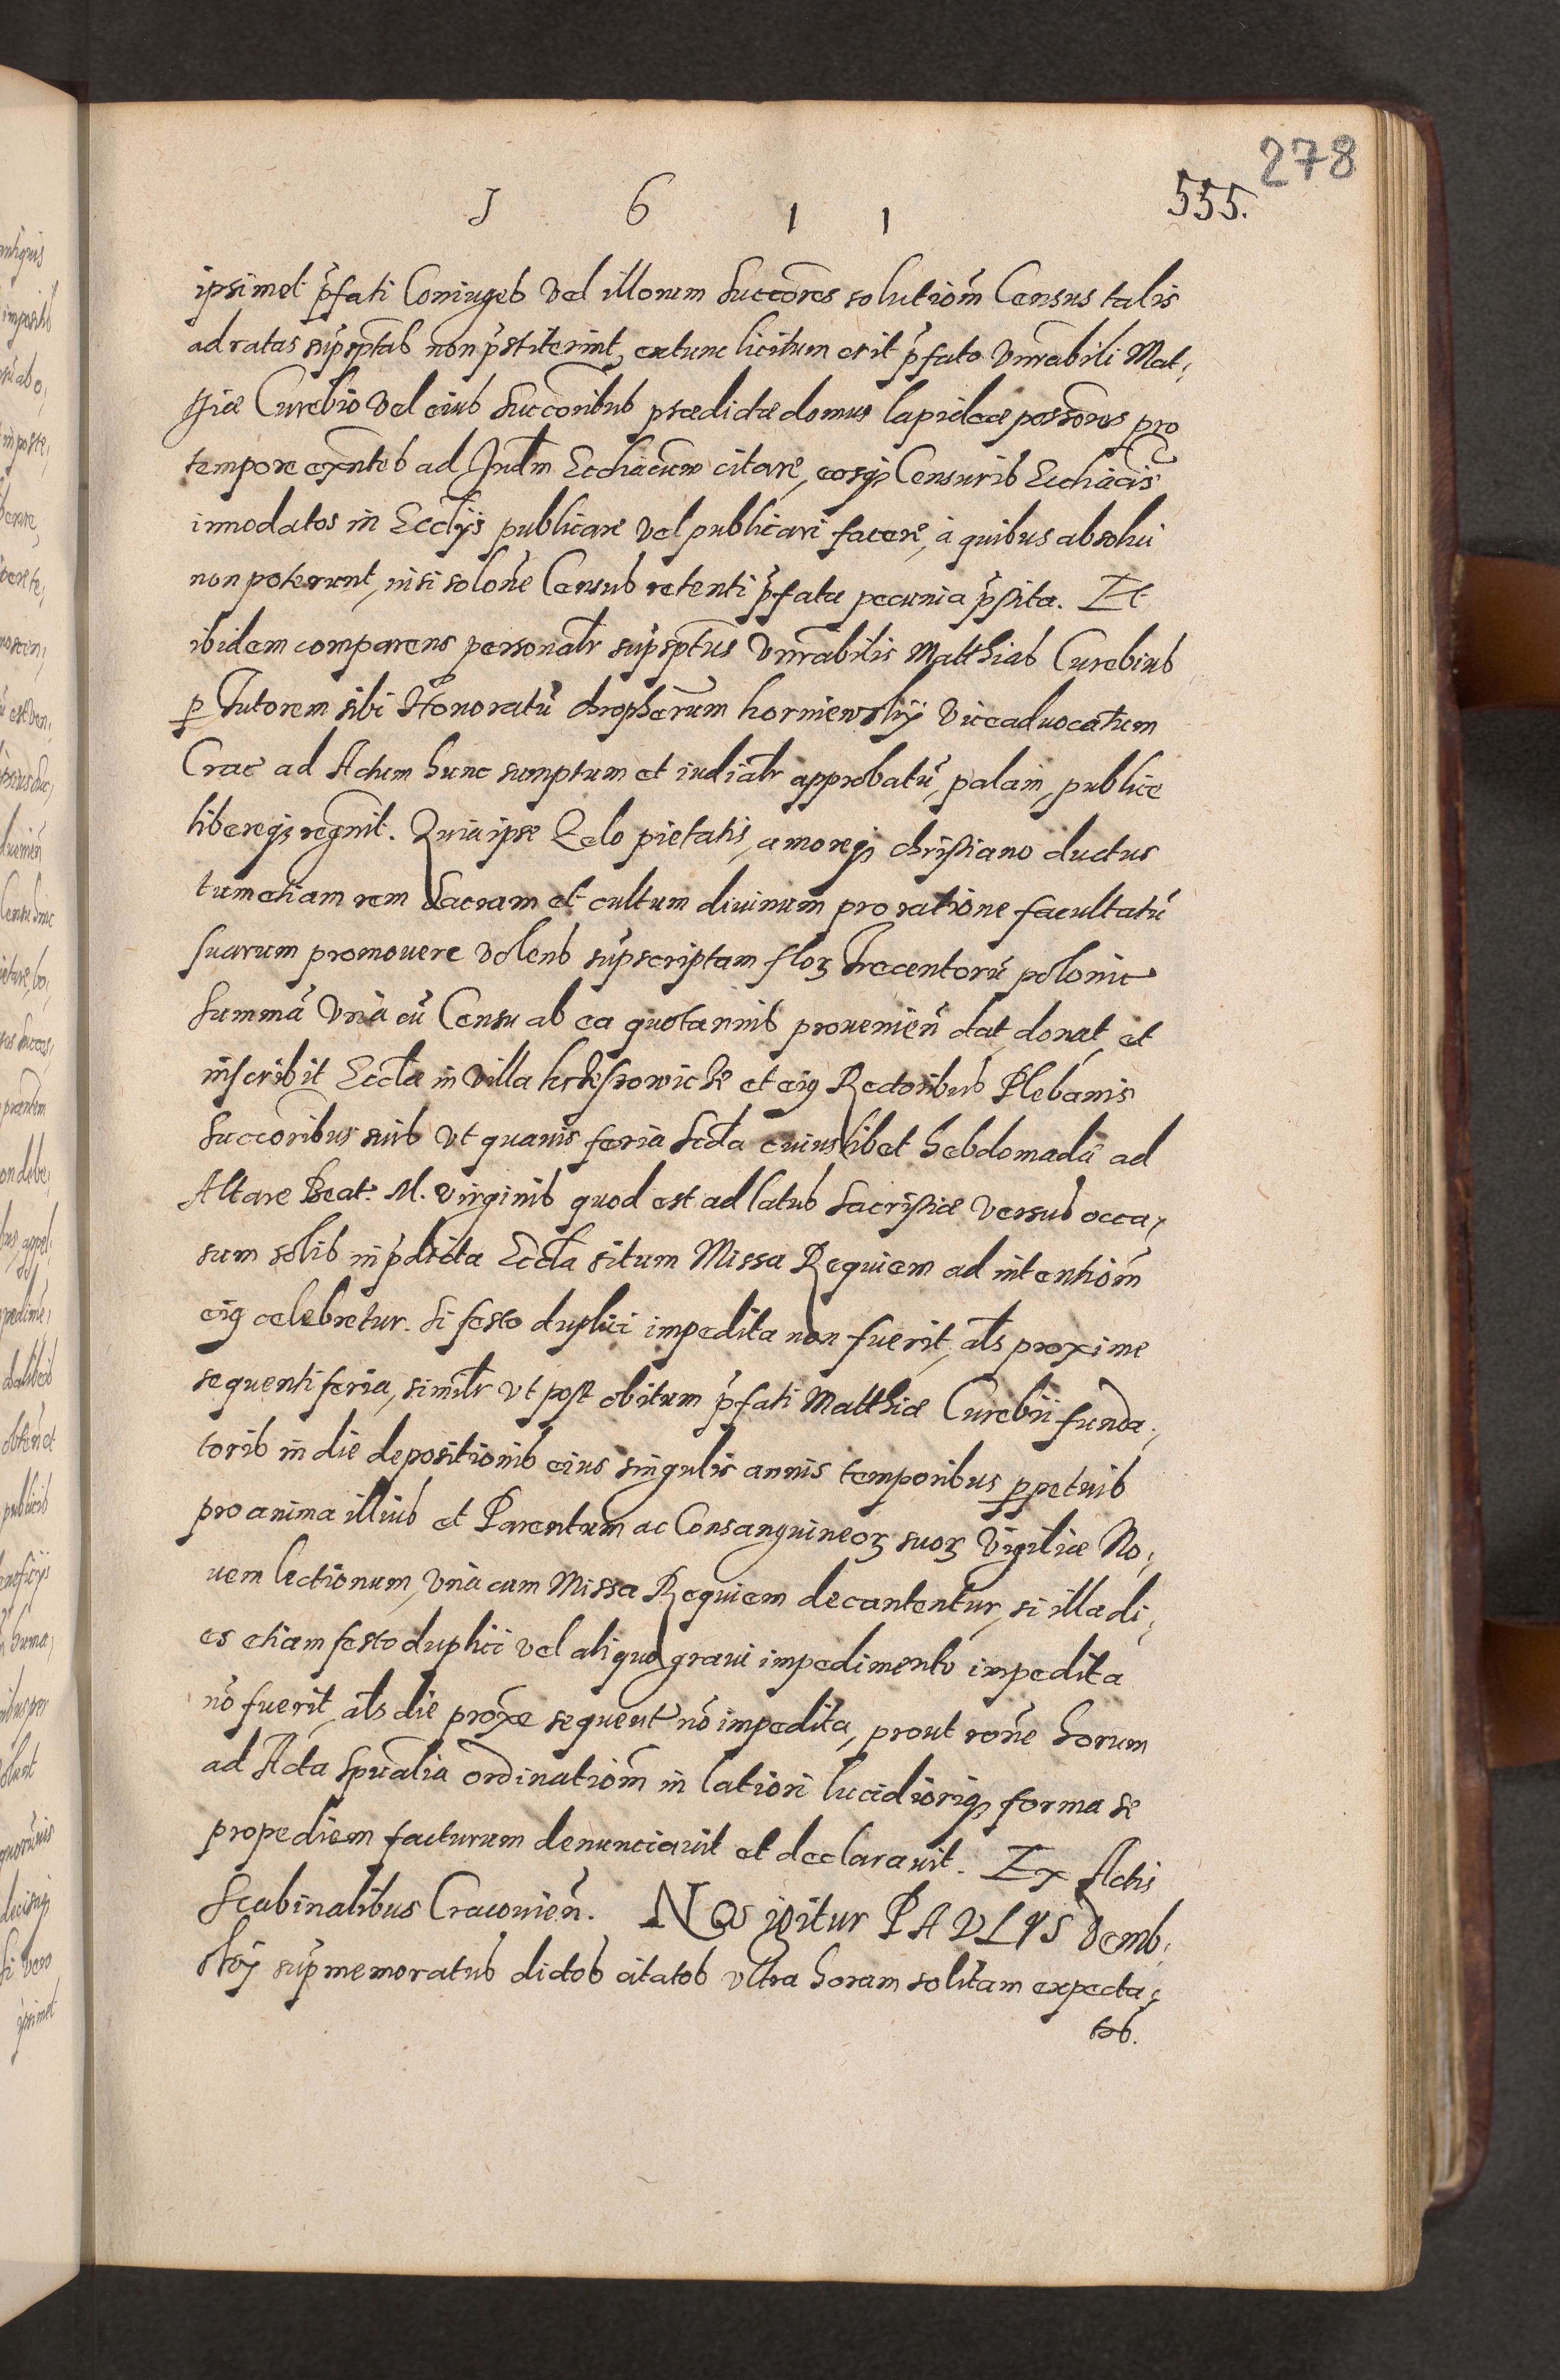 278
1 6 1 1
555.
ipsimet p̄fati Coniuges vel illorum Succōres solutiom̄ Census talis
ad ratas sup̄sptas non p̄stiterint, extunc licitum erit p̄fato Vnrabili Mat,
thiæ Curebio vel eius Succoribus prædictæ domus lapideæ possores pro
tempore exntes ad Judm Ecchiacum citare, eosq; Censuris Ecchiacis
innodatos in Ecclijs publicare vel publicari facere, à quibus absolui
non poterunt, nisi solone Census retenti p̄fata pecunia p̄stita. Et
ibidem comparens personalr sup̄sptus Vnrabilis Matthias Curebius
p Tutorem sibi Honoratū chrophorum horniewskij Viceaduocatum
Crac̄ ad Actum hunc sumptum et iudialr approbatū, palam, publice
libereq; regnit. Quia ipse Zelo pietatis, amoreq; christiano ductus
tum etiam rem Sacram et cultum diuinum pro ratione facultatū
suarum promouere volens sup̄scriptam floꝝ Trecentorū polonic
Summā Vnà cū Censu ab ea quotannis prouenien̄ dat donat et
inscribit Eccla in villa et eiꝰ Rectoribus Plebanis
Succoribus suis vt quauis feria Scda cuiuslibet hebdomadæ ad
Altare Beat: M. Virginis quod est ad latus Sacristiæ versus occa,
sum solis in p̄dicta Eccla situm Missa Requiem ad intentiom̄
eiꝰ celebretur. Si festo duplici impedita non fuerit, als proxime
sequenti feria, similr vt post obitum p̄fati Matthiæ Curebii funda,
toris in die depositionis eius singulis annis temporibus ppetuis
pro anima illius et Parentum ac Consanguineoꝝ suoꝝ Vigiliæ No,
uem lectionum, Vnà cum Missa Requiem decantentur, si illa di,
es etiam festo duplici vel aliquo graui impedimento impedita
nō fuerit, als die proxe sequent nō impedita, prout rone horum
ad Acta Spūalia ordinatiom̄ in latiori lucidioriq; forma se
propediem facturum denunciauit et declarauit. Ex Actis
Scabinalibus Cracouien̄. Nos igitur PAVLVS Demb,
skij sup̄memoratus dictos citatos vltra horam solitam expecta,
tos.